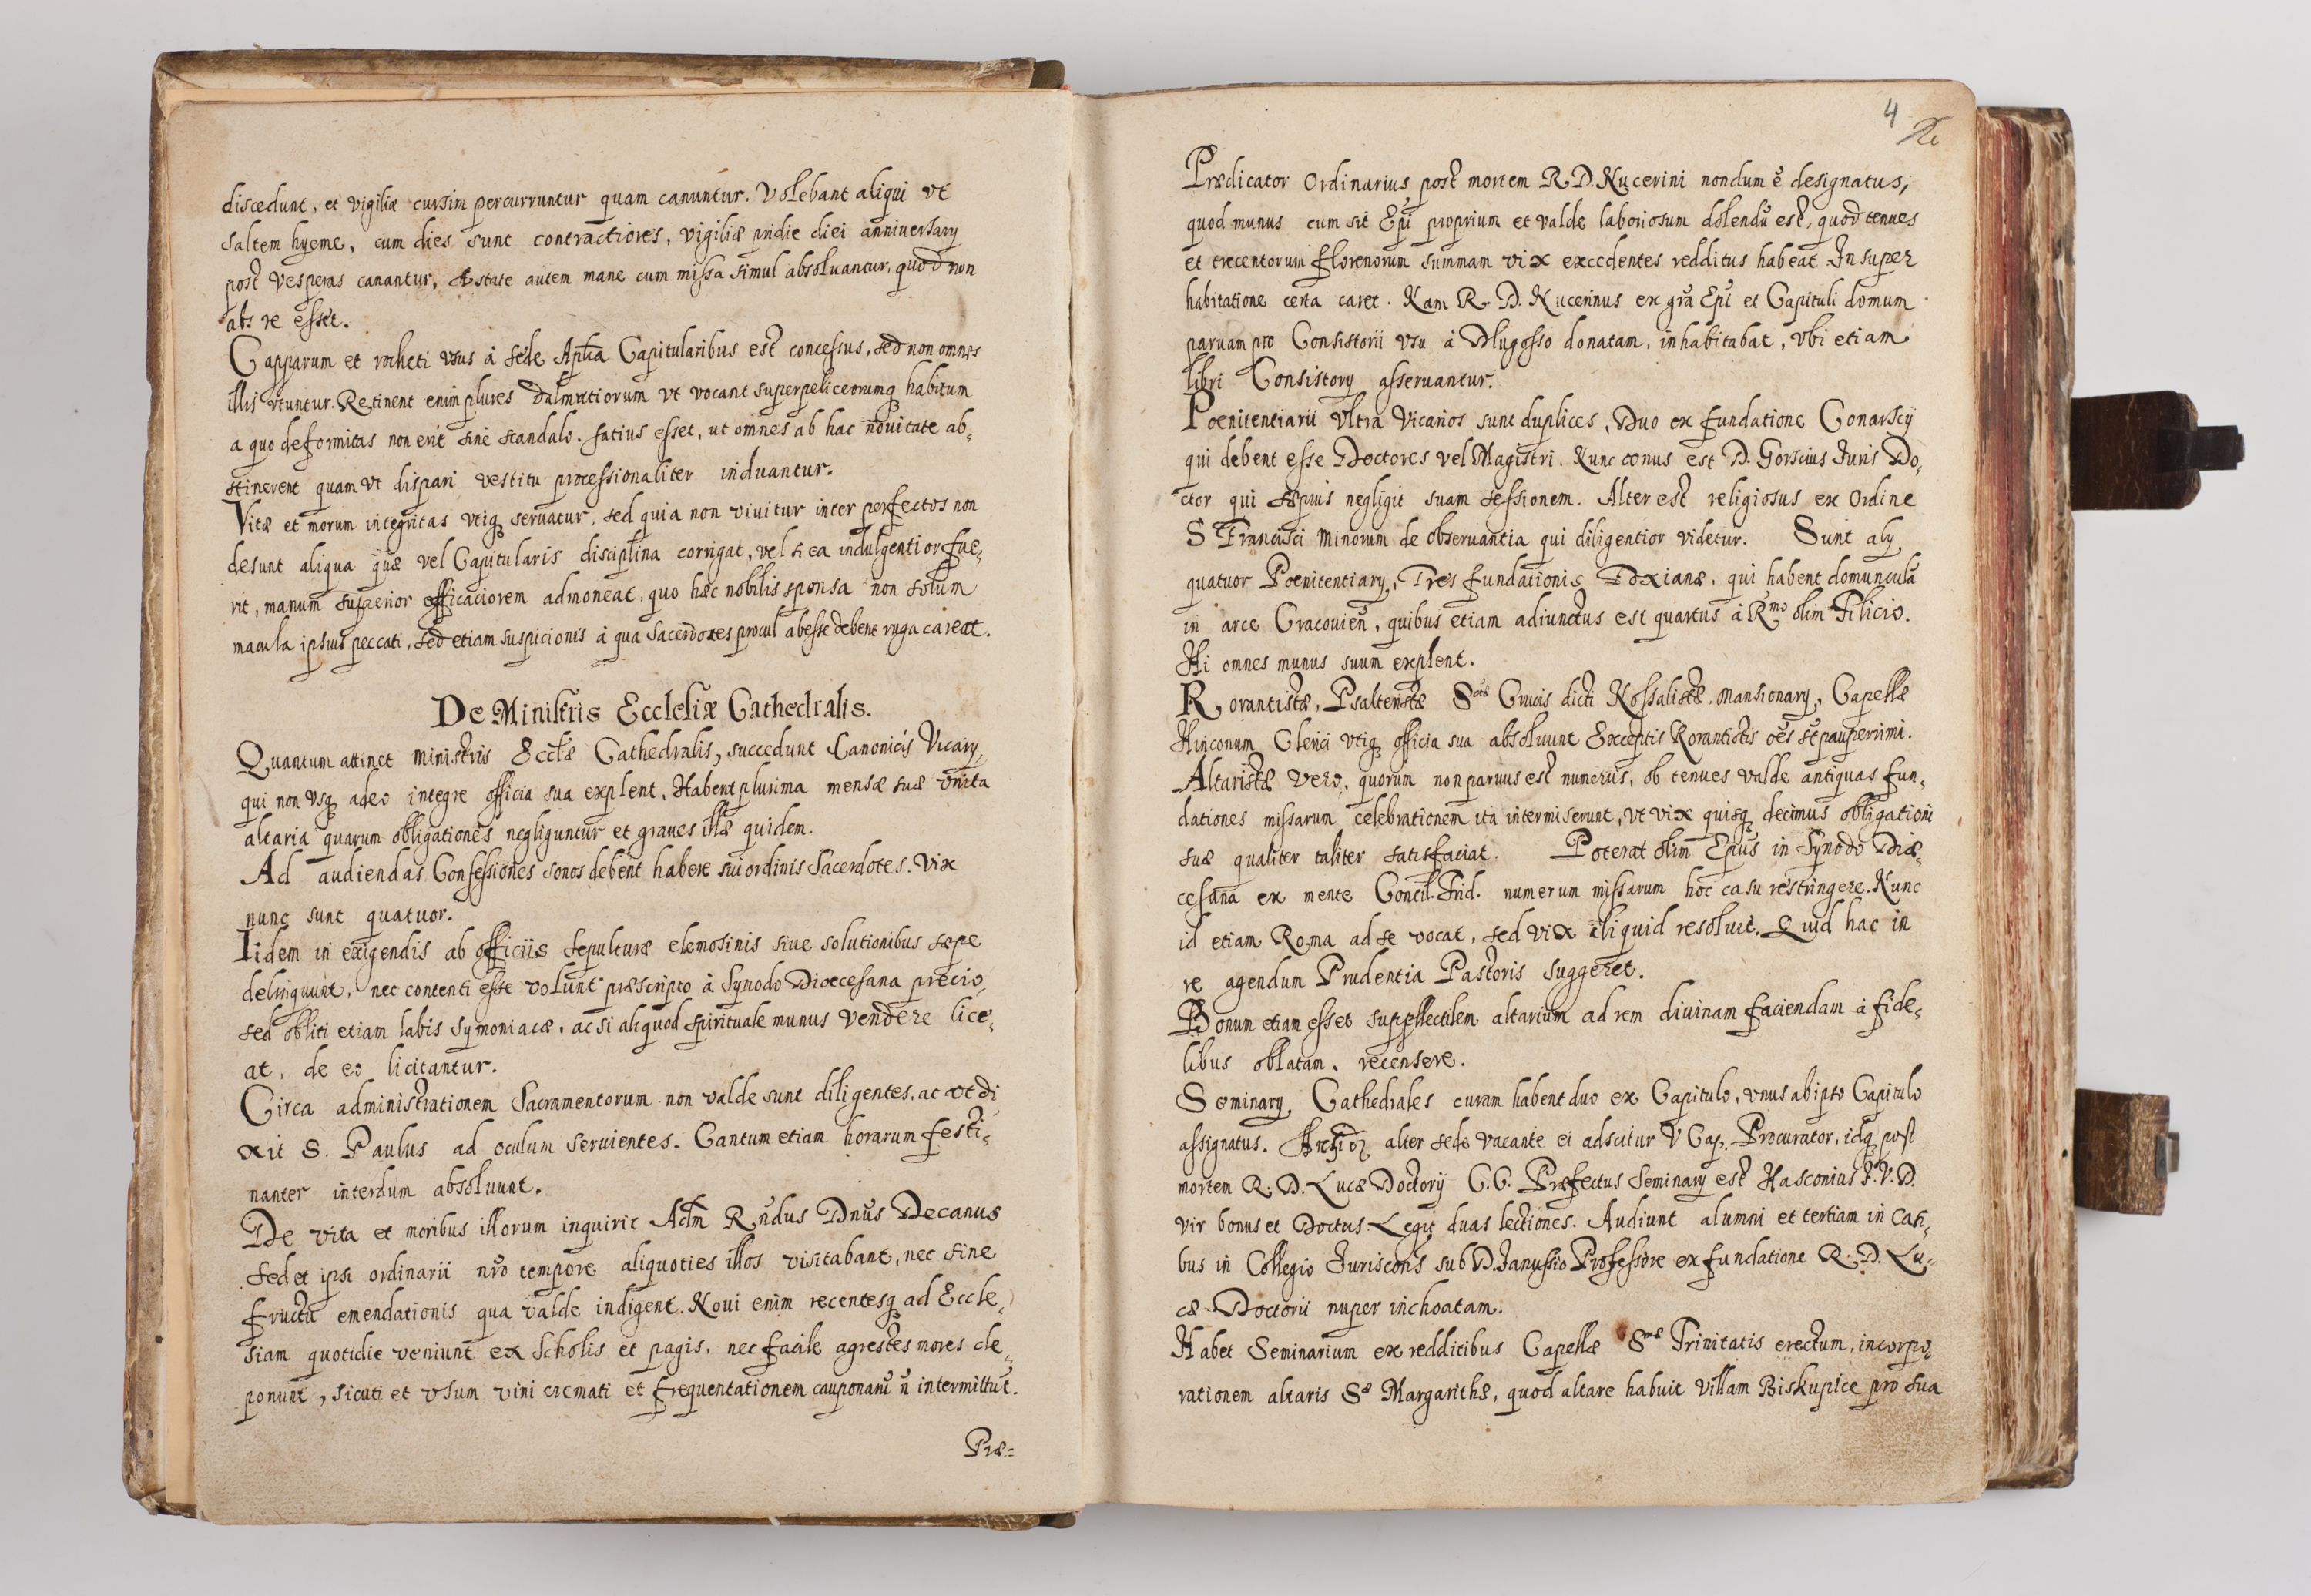 discedunt, et vigiliæ cursim percurruntur quam canuntur. Volebant aliqui vt
saltem hyeme, cum dies sunt contractiores, vigiliæ pridie diei anniuersarij
post vesperas canantur, Æstate autem mane cum missa simul absoluantur, quod non
abs re esset.
Capparum et rocheti vsus à sede Aplica Capitularibus est concessus, sed non omnes
illis vtuntur. Retinent enim plures dalmatiorum vt vocant superpeliceorumq habitum
a quo deformitas non erit sine scandalo. satius esset, ut omnes ab hac nouitate ab,
stinerent quam vt dispari vestitu processionaliter induantur.
Vitæ et morum integritas vtiq seruatur, sed quia non viuitur inter perfectos non
desunt aliqua quæ vel Capitularis disciplina corrigat, vel si ea indulgentior fue,
rit, manum superior efficaciorem admoneat, quo hæc nobilis sponsa non solum
macula ipsius peccati, sed etiam suspicionis à qua Sacerdotes procul abesse debent ruga careat.
De Ministris Ecclesiæ Cathedralis.
Quantum attinet ministris Ecclæ Cathedralis, succedunt Canonicis Vicarij,
qui non vsq adeo integre officia sua explent, Habent plurima mensæ suæ vnita
altaria quarum obligationes negliguntur et graues illæ quidem.
Ad audiendas Confessiones sonos debent habere sui ordinis Sacerdotes. Vix
nunc sunt quatuor.
Iidem in exigendis ab officiis sepulturæ elemosinis siue solutionibus sæpe
delinquunt, nec contenti esse volunt præscripto à Synodo Diœcesana precio,
sed obliti etiam labis symoniacæ, ac si aliquod spirituale munus vendere lice,
at, de eo licitantur.
Circa administrationem Sacramentorum non valde sunt diligentes, ac vt di
xit S. Paulus ad oculum seruientes. Cantum etiam horarum festi,
nanter interdum absoluunt.
De vita et moribus illorum inquirit Adm Rndus Dnus Decanus
sed et ipsi ordinarii nro tempore aliquoties illos visitabant, nec sine
fructu emendationis qua valde indigent. Noui enim recentesq ad Eccle,
siam quotidie veniunt ex Scholis et pagis, nec facile agrestes mores de,
ponunt, sicuti et vsum vini cremati et frequentationem cauponarū n̄ intermittūt.
Præ=
4
Prædicator Ordinarius post mortem R. D. Nucerini nondum ē designatus,
quod munus cum sit Epi proprium et valde laboriosum dolendū est, quod tenues
et trecentorum florenorum summam vix excedentes redditus habeat. Insuper
habitatione certa caret. Nam R. D. Nucerinus ex gra Epi et Capituli domum
paruam pro Consistorii vsu à Dlugosso donatam, inhabitabat, vbi etiam
libri Consistorij asseruantur.
Pœnitentiarii vltra Vicarios sunt duplices, Duo ex fundatione Conarscij
qui debent esse Doctores vel Magistri. Nunc vnus est D. Gorscius Iuris Do,
ctor qui sæpius negligit suam sessionem. Alter est religiosus ex Ordine
S Francisci Minorum de obseruantia qui diligentior videtur. Sunt alij
quatuor Pœnitentiarij, Tres fundationis Doxianæ, qui habent domunculā
in arce Cracouien, quibus etiam adiunctus est quartus à Rmo olim Filicio.
Hi omnes munus suum explent.
Rorantistæ, Psalteristæ Stæ Crucis dicti Kossalistæ, mansionarij, Capellæ
Hinconum Clerici vtiq officia sua absoluunt Exceptis Rorantistis oēs st pauperrimi.
Altaristæ vero, quorum non paruus est numerus, ob tenues valde antiquas fun,
dationes missarum celebrationem ita intermiserunt, vt vix quisq decimus obligationi
suæ qualiter taliter satisfaciat. Poterat olim Epus in Synodo Diæ,
cesana ex mente Concil. Trid. numerum missarum hoc casu restringere. Nunc
id etiam Roma ad se vocat, sed vix aliquid resoluit. Quid hac in
re agendum Prudentia Pastoris suggeret.
Bonum etiam esset suppellectilem altarium ad rem diuinam faciendam à fide,
libus oblatam, recensere.
Seminarij Cathedrales curam habent duo ex Capitulo, vnus ab ipso Capitulo
assignatus. alter sede vacante ei adscitur V Cap. Procurator, idq post
mortem R. D. Lucæ Doctorij C. C. Præfectus Seminarij est Hasconius I. V. D.
vir bonus et Doctus. Legit duas lectiones. Audiunt alumni et tertiam in Casi,
bus in Collegio Iuriscons sub D. Ianussio Professore ex fundatione R. D. Lu,
cæ Doctorii nuper inchoatam.
Habet Seminarium ex redditibus Capellæ Smæ Trinitatis erectum, incorpo,
rationem altaris Sæ Margarithæ, quod altare habuit villam Biskupice pro sua